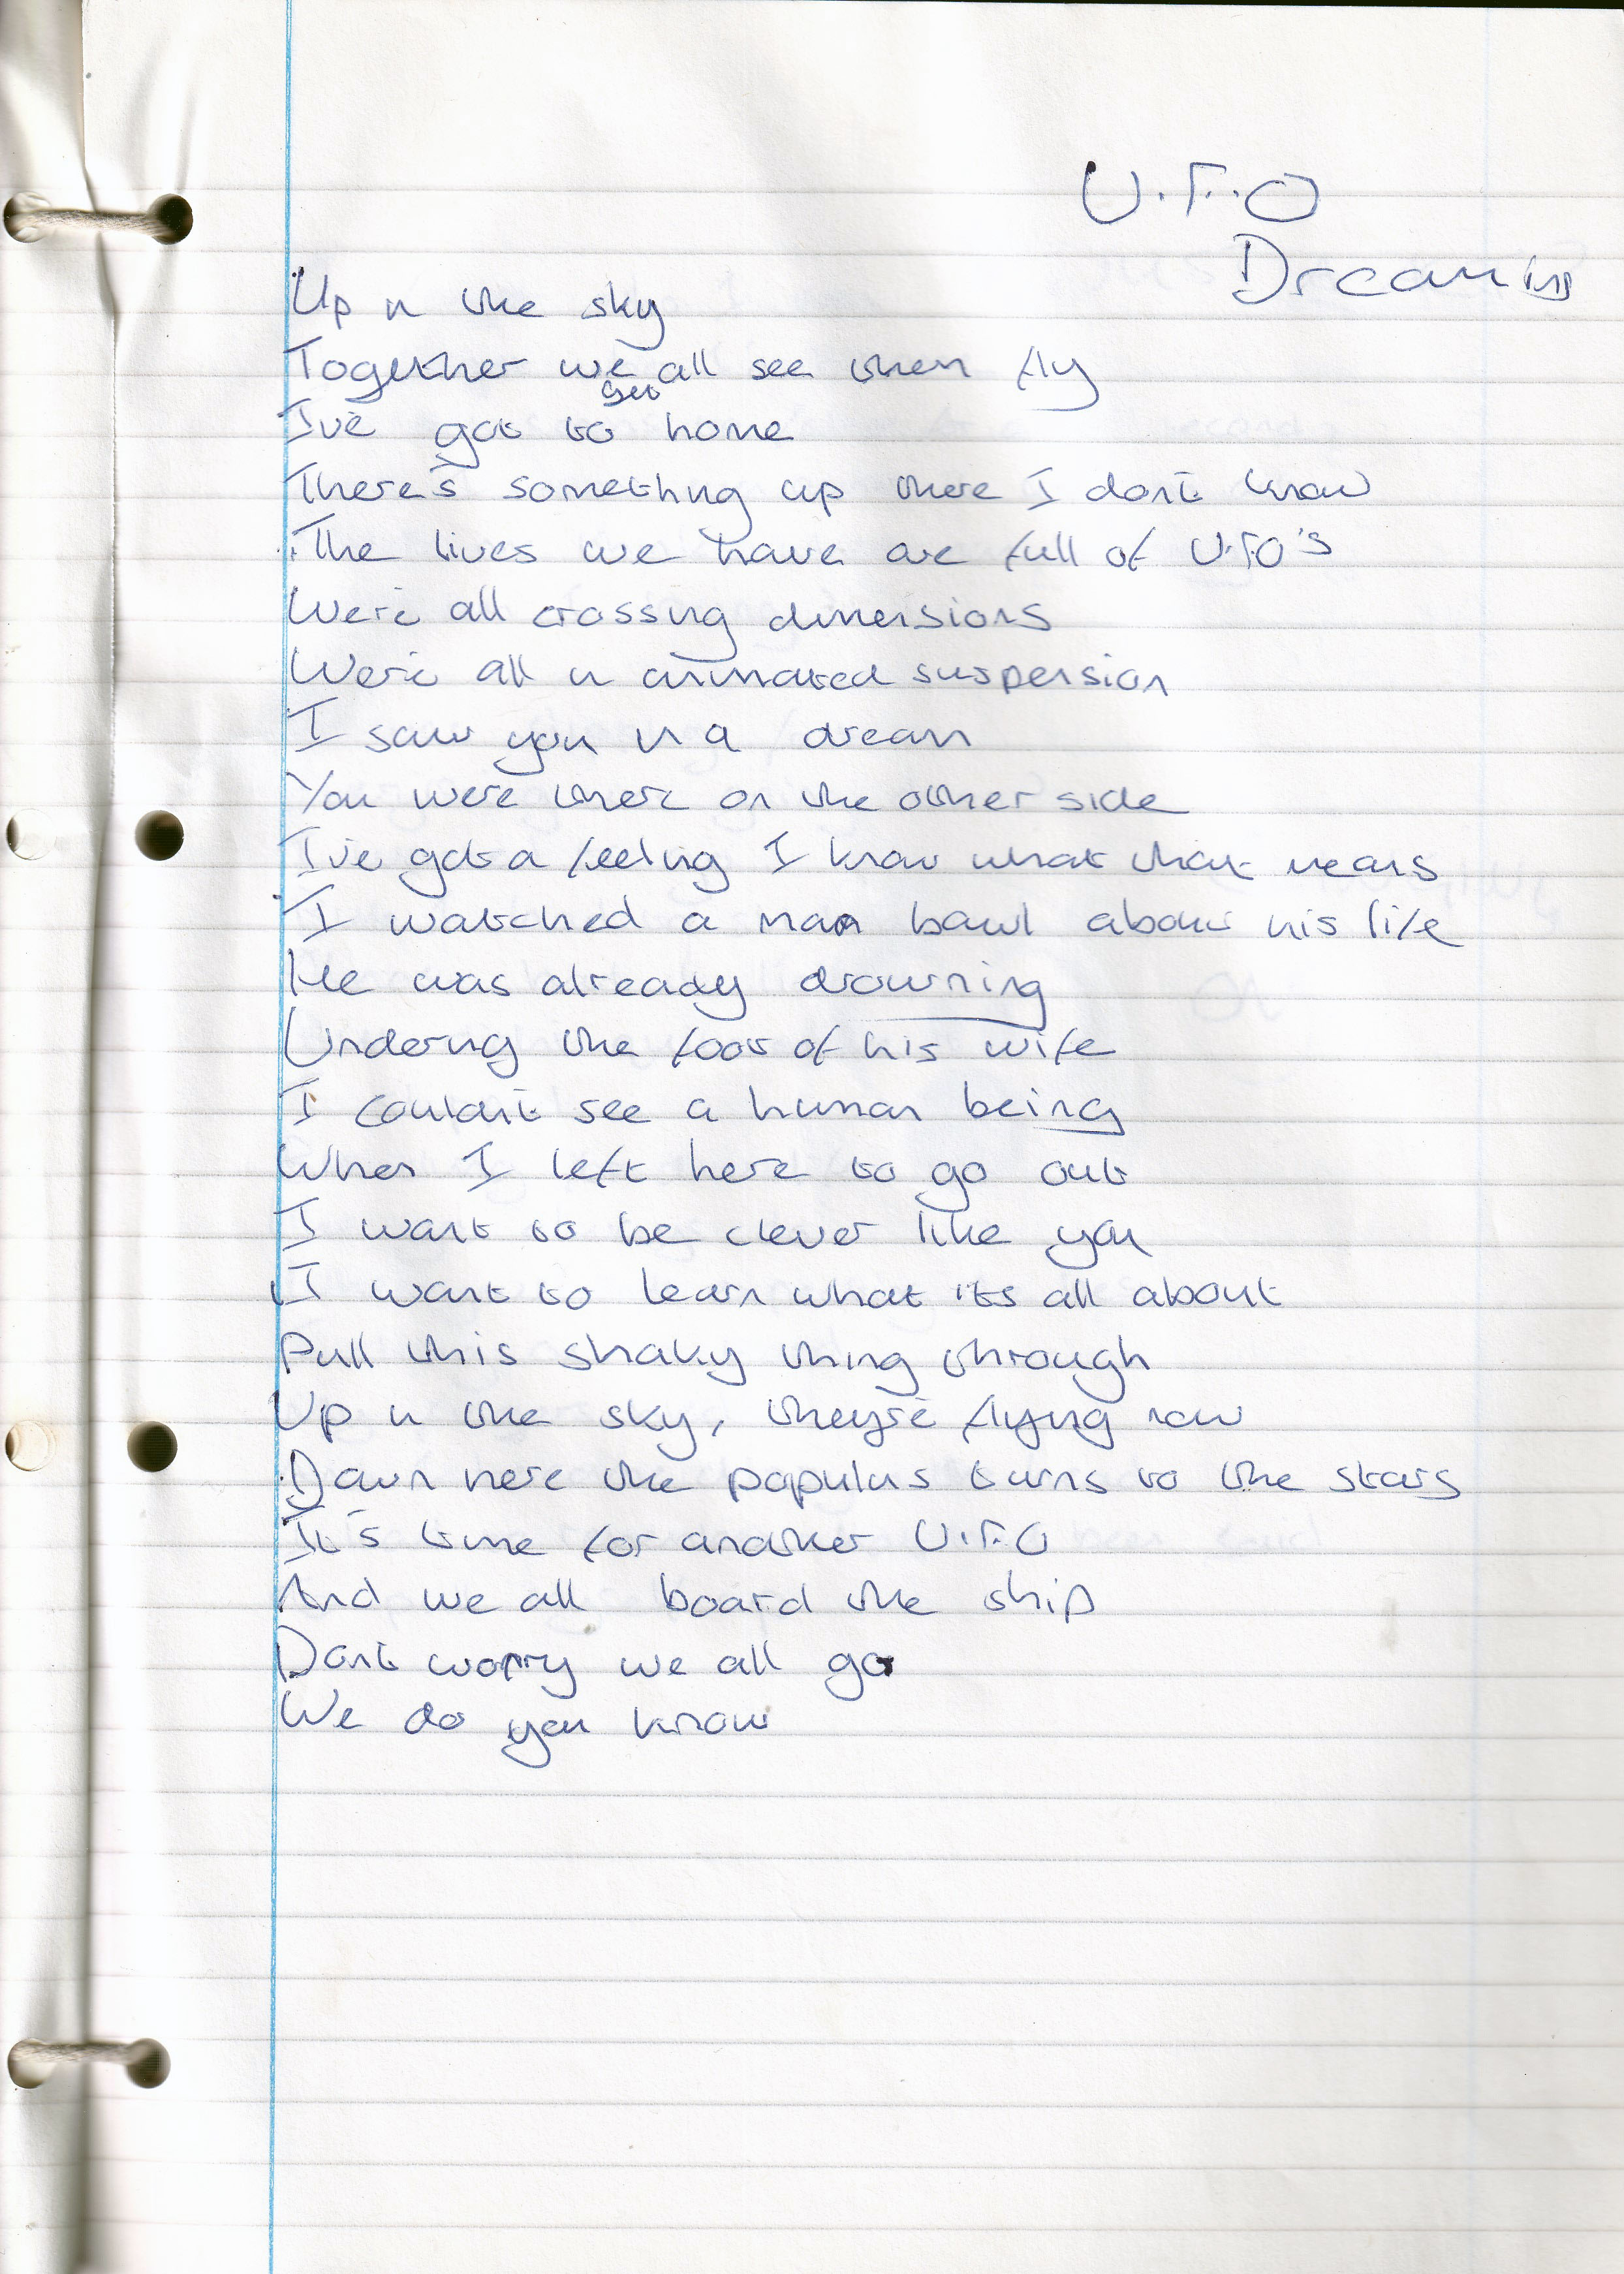 U.F.O
Dreaming
Up in the sky
Together we all see them fly
I've got to get home
There's something up there I don't know
The lives we have are full of U.F.O's
We're all crossing dimensions
We're all in animated suspension
I saw you in a dream
You were there on the other side
I've got a feeling I know what that means
I watched a man bawl about his life
He was already drowning
Undering the foot of his wife
I couldn't see a human being
When I left here to go out
I want to be clever like you
I want to learn what its all about
Pull this shaky thing through
Up in the sky, they're flying now
Down here the populus turns to the stars
It's time for another U.F.O
And we all board the ship
Don't worry we all go
We do you know